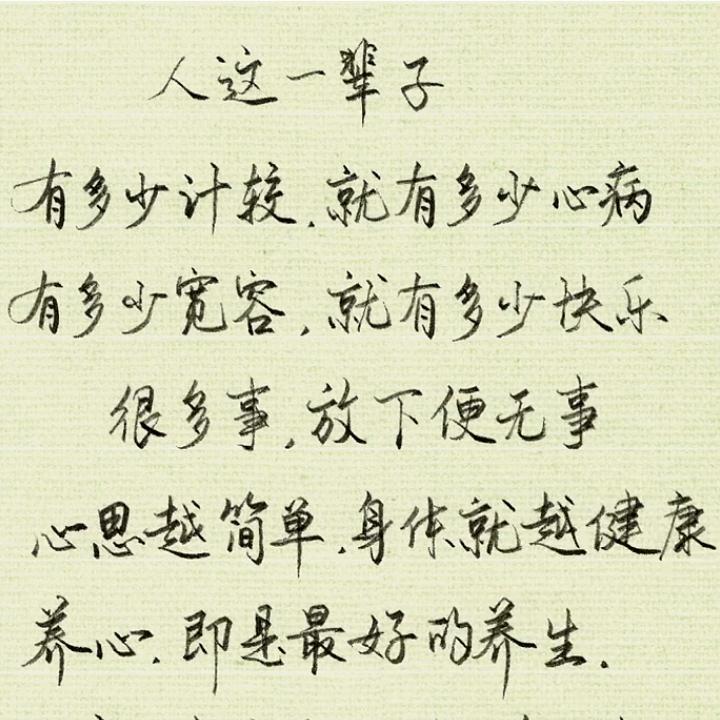 人这一辈子
有多少计较,就有多少心病
有多少宽容,就有多少快乐
很多事,放下便无事
心思越简单,身体就越健康
养心,即是最好的养生.